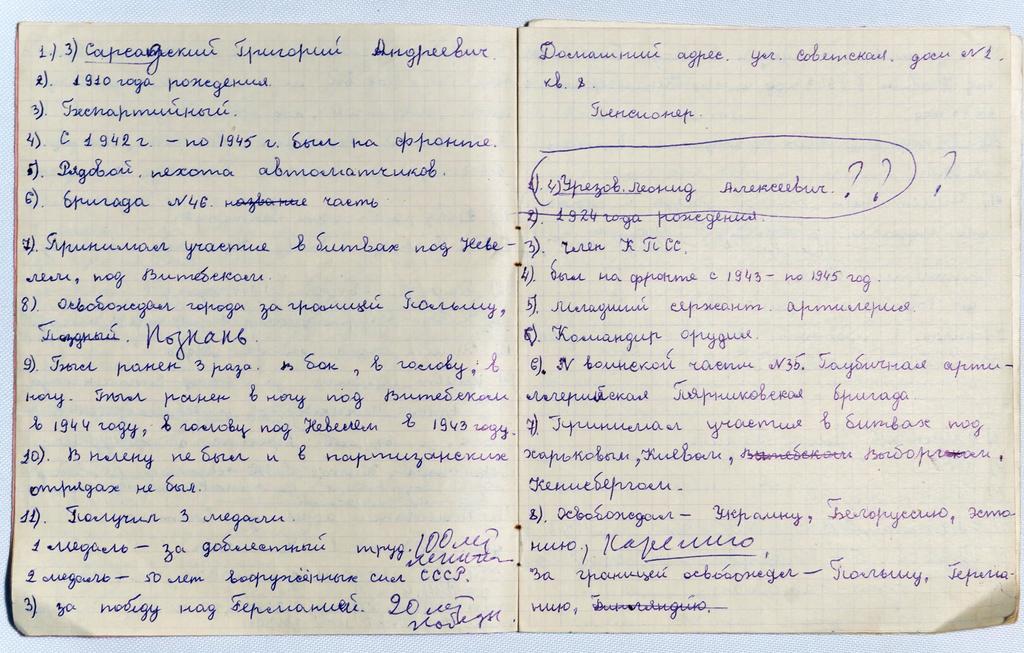 1.) 3) Сарсадский Григорий Андреевич.
2). 1910 года рождения.
3). Беспартийный.
4). С 1942 г. – по 1945 г. был на фронте.
5). Рядовой. пехота автоматчиков.
6). Бригада №46. название часть
7). Принимал участие в битвах под Неве-
лем, под Витебском.
8). Освобождал города за границей Польшу,
Поздный. Познань.
9). Был ранен 3 раза. в бок, в голову, в
ногу. Был ранен в ногу под Витебском
в 1944 году, в голову под Невелем в 1943 году.
10). В плену не был и в партизанских
отрядах не был.
11). Получил 3 медали.
1 медаль – за доблестный труд. 100 лет
Ленина
2 медаль – 50 лет вооружённых сил СССР.
3) за победу над Германией. 20 лет
победы.
Домашний адрес. ул. Советская. дом №1.
кв. 8.
Пенсионер.
1). 4) Урезов. Леонид Алексеевич. ? ? ?
2). 1924 года рождения.
3). член КПСС.
4). был на фронте с 1943 – по 1945 год.
5). Младший сержант. артилерия.
6). Командир орудия.
6). № воинской части №35. Гаубичная арти-
лерийская Пярниковская бригада.
7). Принимал участия в битвах под
Харьковым, Киевом, Витебском Выборгском,
Кенисбергом.
8). Освобождал – Украину, Белоруссию, Эсто-
нию, Карелию,
За границей освобождал – Польшу, Герма-
нию, Финляндию.